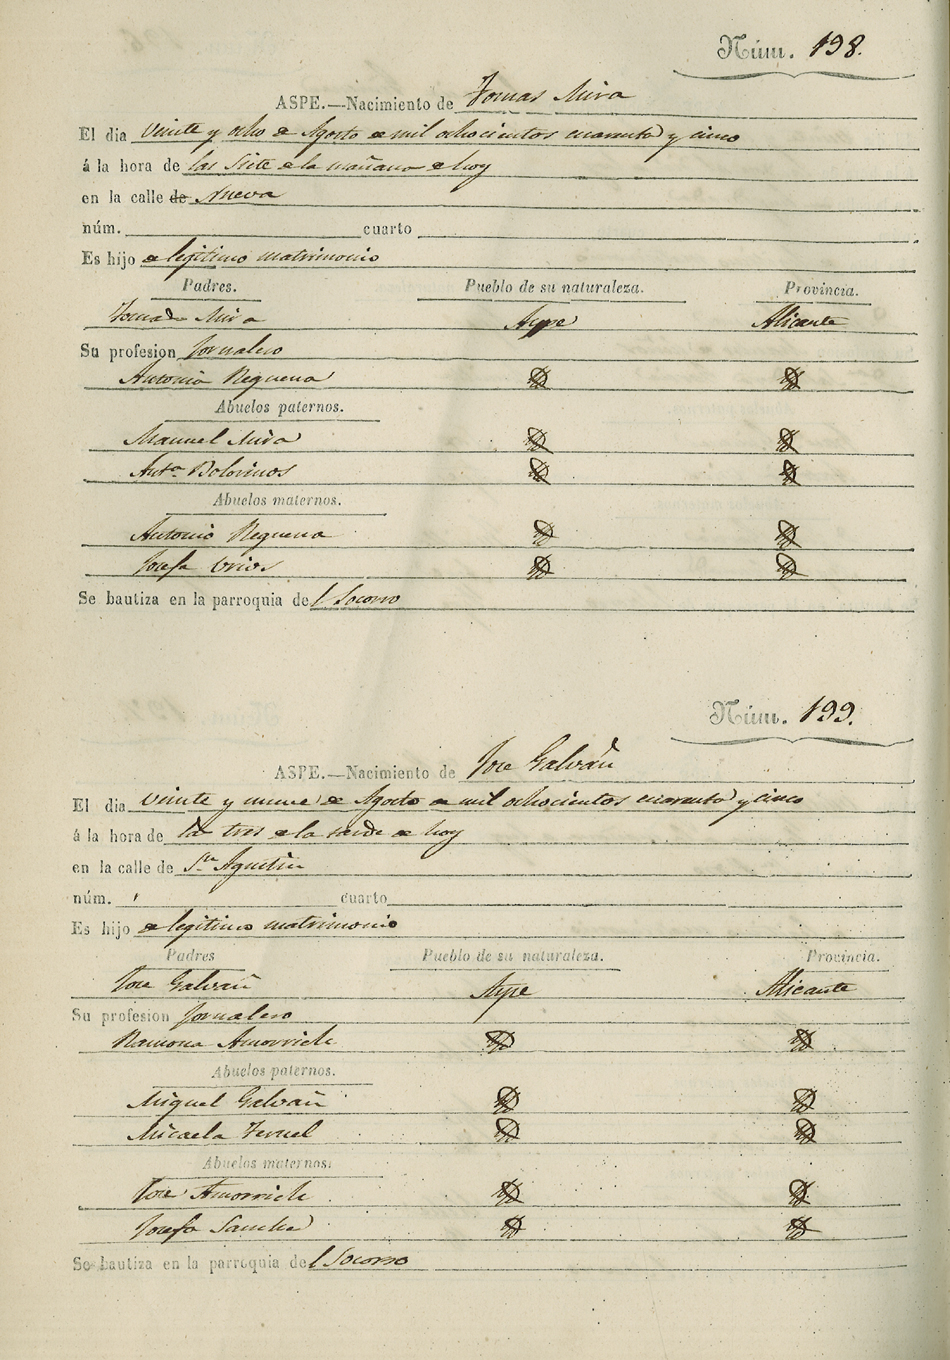 Núm. 198.
ASPE.—Nacimiento de Tomas Mira
El dia veinte y ocho de Agosto de mil ochocientos cuarenta y cinco
á la hora de las siete de la mañana de hoy
en la calle de Nueva
núm. cuarto
Es hijo de legitimo matrimonio
Padres. Pueblo de su naturaleza. Provincia.
Tomas Mira Aspe Alicante
Su profesion Jornalero
Antonia Requena
Abuelos paternos.
Manuel Mira
Anta. Bolorinos
Abuelos maternos.
Antonio Requena
Josefa
Se bautiza en la parroquia del Socorro
Núm. 199.
ASPE.—Nacimiento de Jose Galvañ
El dia veinte y nueve de Agosto de mil ochocientos cuarenta y cinco
á la hora de las tres de la tarde de hoy
en la calle de Sn. Agustin
núm. cuarto
Es hijo de legitimo matrimonio
Padres Pueblo de su naturaleza. Provincia.
Jose Galvañ Aspe Alicante
Su profesion Jornalero
Ramona Amorrich
Abuelos paternos.
Miguel Galvañ
Micaela Teruel
Abuelos maternos.
Jose Amorrich
Josefa Sanche
Se bautiza en la parroquia del Socorro